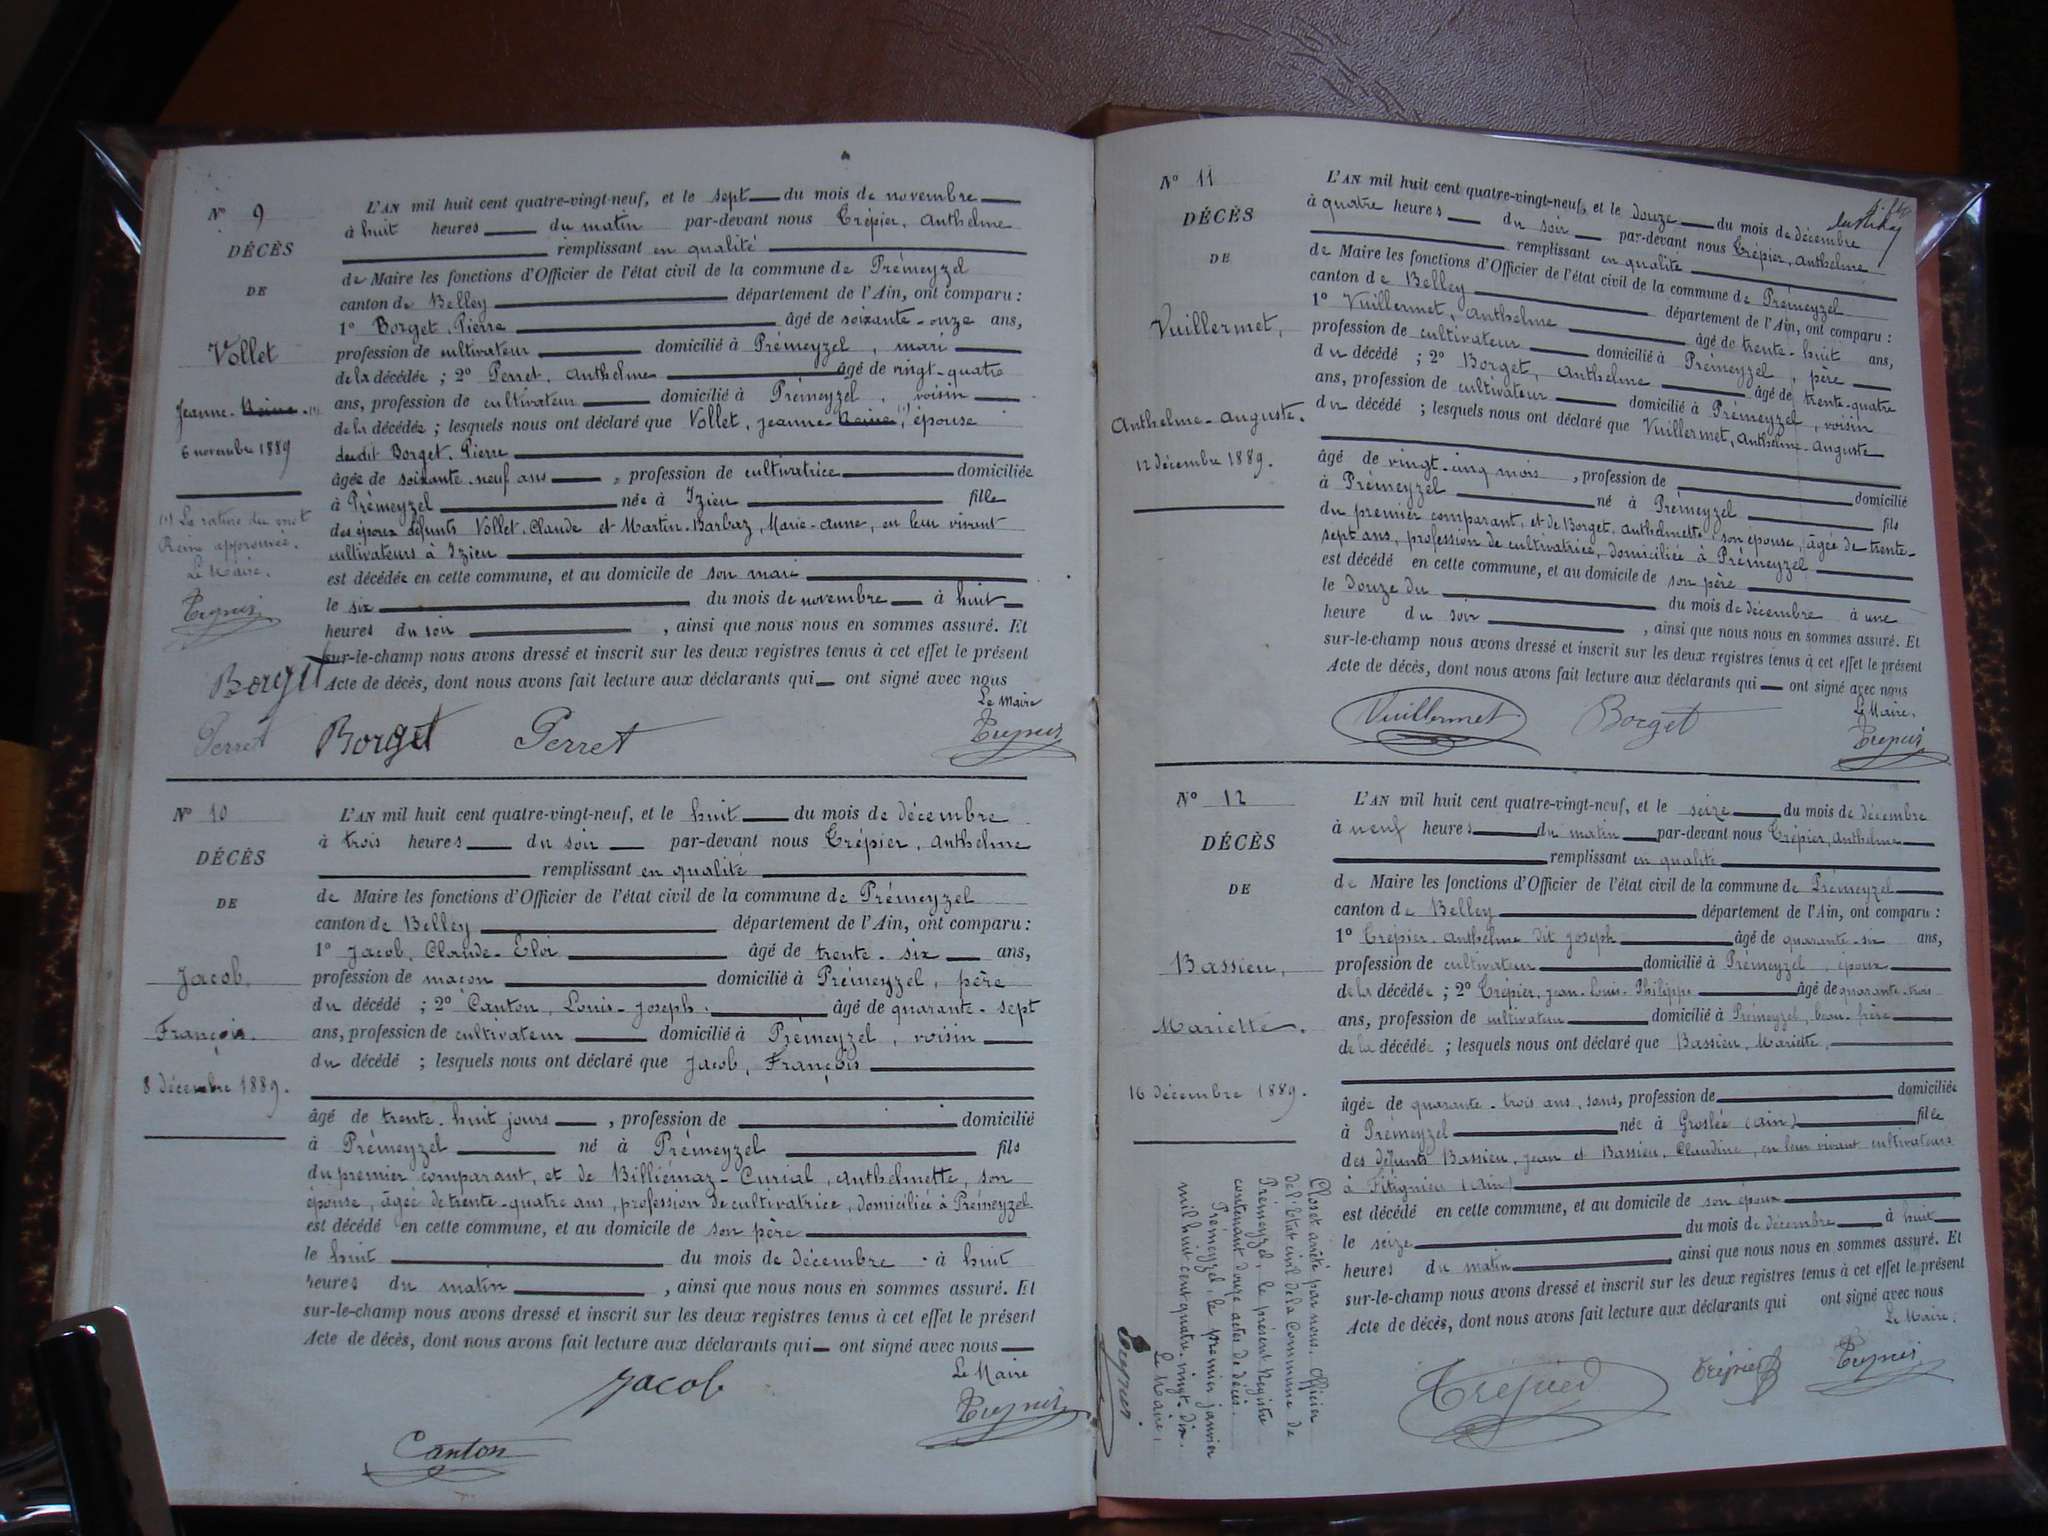 N° 9
DÉCÈS
DE
Vollet
Jeanne-Reine (1)
6 novembre 1889
(1) La rature du mot
Reine approuvée.
Le Maire,
Trépier
L'AN mil huit cent quatre-vingt-neuf, et le sept du mois de novembre
à huit heures du matin par-devant nous Trépier, Anthelme
remplissant en qualité
de Maire les fonctions d'Officier de l'état civil de la commune de Prémeyzel
canton de Belley département de l'Ain, ont comparu :
1° Borget, Pierre âgé de soixante-onze ans,
profession de cultivateur domicilié à Prémeyzel, mari
de la décédée ; 2° Perret, Anthelme âgé de vingt-quatre
ans, profession de cultivateur domicilié à Prémeyzel, voisin
de la décédée ; lesquels nous ont déclaré que Vollet, Jeanne-Reine (1), épouse
dudit Borget, Pierre
âgée de soixante-neuf ans, profession de cultivatrice domiciliée
à Prémeyzel née à Izieu fille
des époux défunts Vollet, Claude et Martin-Barbaz, Marie-Anne, en leur vivant
cultivateurs à Izieu
est décédée en cette commune, et au domicile de son mari
le six du mois de novembre à huit
heures du soir, ainsi que nous nous en sommes assuré. Et
sur-le-champ nous avons dressé et inscrit sur les deux registres tenus à cet effet le présent
Acte de décès, dont nous avons fait lecture aux déclarants qui ont signé avec nous
Le Maire
Borget
Perret Borget Perret Trépier
N° 10
DÉCÈS
DE
Jacob,
François.
8 décembre 1889.
L'AN mil huit cent quatre-vingt-neuf, et le huit du mois de décembre
à trois heures du soir par-devant nous Trépier, Anthelme
remplissant en qualité
de Maire les fonctions d'Officier de l'état civil de la commune de Prémeyzel
canton de Belley département de l'Ain, ont comparu :
1° Jacob, Claude-Eloi âgé de trente-six ans,
profession de maçon domicilié à Prémeyzel, père
du décédé ; 2° Canton, Louis-Joseph, âgé de quarante-sept
ans, profession de cultivateur domicilié à Prémeyzel, voisin
du décédé ; lesquels nous ont déclaré que Jacob, François
âgé de trente-huit jours, profession de domicilié
à Prémeyzel né à Prémeyzel fils
du premier comparant, et de Billiémaz-Curial, Anthelmette, son
épouse, âgée de trente-quatre ans, profession de cultivatrice, domiciliée à Prémeyzel
est décédé en cette commune, et au domicile de son père
le huit du mois de décembre à huit
heures du matin, ainsi que nous nous en sommes assuré. Et
sur-le-champ nous avons dressé et inscrit sur les deux registres tenus à cet effet le présent
Acte de décès, dont nous avons fait lecture aux déclarants qui ont signé avec nous
Le Maire
Jacob Trépier
Canton
N° 11
DÉCÈS
DE
Vuillermet,
Anthelme-Auguste.
12 décembre 1889.
L'AN mil huit cent quatre-vingt-neuf, et le douze du mois de décembre
à quatre heures du soir par-devant nous Trépier, Anthelme
remplissant en qualité
de Maire les fonctions d'Officier de l'état civil de la commune de Prémeyzel
canton de Belley département de l'Ain, ont comparu :
1° Vuillermet, Anthelme âgé de trente-huit ans,
profession de cultivateur domicilié à Prémeyzel, père
du décédé ; 2° Borget, Anthelme âgé de trente-quatre
ans, profession de cultivateur domicilié à Prémeyzel, voisin
du décédé ; lesquels nous ont déclaré que Vuillermet, Anthelme-Auguste
âgé de vingt-cinq mois, profession de domicilié
à Prémeyzel né à Prémeyzel fils
du premier comparant, et de Borget, Anthelmette, son épouse, âgée de trente-
sept ans, profession de cultivatrice, domiciliée à Prémeyzel
est décédé en cette commune, et au domicile de son père
le douze du du mois de décembre à une
heure du soir, ainsi que nous nous en sommes assuré. Et
sur-le-champ nous avons dressé et inscrit sur les deux registres tenus à cet effet le présent
Acte de décès, dont nous avons fait lecture aux déclarants qui ont signé avec nous
Le Maire,
Vuillermet Borget Trépier
N° 12
DÉCÈS
DE
Bassieu,
Mariette.
16 décembre 1889.
L'AN mil huit cent quatre-vingt-neuf, et le seize du mois de décembre
à neuf heures du matin par-devant nous Trépier, Anthelme
remplissant en qualité
de Maire les fonctions d'Officier de l'état civil de la commune de Prémeyzel
canton de Belley département de l'Ain, ont comparu :
1° Trépier, Anthelme dit Joseph âgé de quarante-six ans,
profession de cultivateur domicilié à Prémeyzel, époux
de la décédée ; 2° Trépier, Jean-Louis-Philippe âgé de quarante-trois
ans, profession de cultivateur domicilié à Prémeyzel, beau-frère
de la décédée ; lesquels nous ont déclaré que Bassieu, Mariette,
âgée de quarante-trois ans, sans, profession de domiciliée
à Prémeyzel née à Groslée (Ain) fille
des défunts Bassieu, Jean et Bassieu, Claudine, en leur vivant cultivateurs
à (Ain)
est décédé en cette commune, et au domicile de son époux
le seize du mois de décembre à huit
heures du matin ainsi que nous nous en sommes assuré. Et
sur-le-champ nous avons dressé et inscrit sur les deux registres tenus à cet effet le présent
Acte de décès, dont nous avons fait lecture aux déclarants qui ont signé avec nous
Le Maire,
Trépier Trépier Trépier
Clos et arrêté par nous, Officier
de l'Etat civil de la Commune de
Prémeyzel, le présent Registre
contenant douze actes de décès.
Prémeyzel, le premier janvier
mil huit cent quatre-vingt-dix.
Le Maire,
Trépier